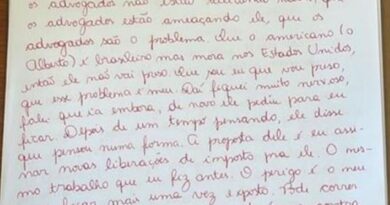 os advogados não estão
os advogados estão ameaçando ele, que os
advogados são o problema. Que o americano (o
Alberto) é brasileiro mas mora nos Estados Unidos,
então ele não vai preso. Que sou eu que vou preso,
que esse problema é meu. Daí fiquei muito nervoso,
falei que ia embora, de novo ele pediu para eu
ficar. Depois de um tempo pensando, ele disse
que pensou numa forma. A proposta dele é eu assi-
nar novas liberações de imposto pra ele. O mes-
mo trabalho que eu fiz antes. O perigo é o meu
ficar mais uma vez exposto. Pode correr